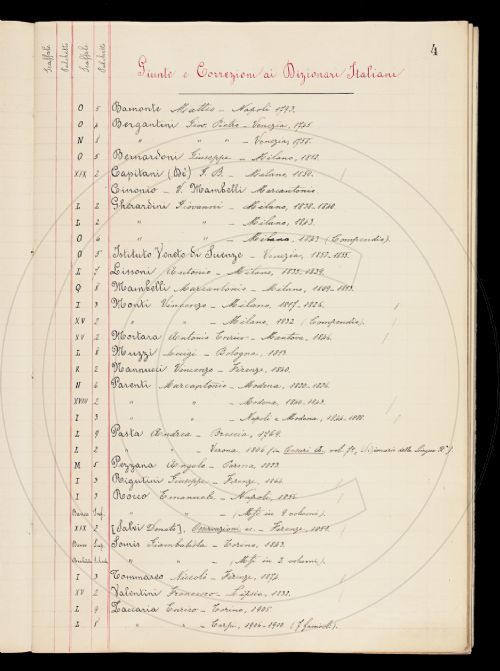 4
Scaffale Palchetto Scaffale Palchetto
Giunte e Correzioni ai Dizionari Italiani
O 5 Bamonte Matteo - Napoli 1793.
O 4 Bergantini Giov. Pietro - Venezia, 1745
N 8 " " " - Venezia, 1758.
O 5 Bernardoni Giuseppe - Milano, 1812.
XIX 2 Capitani (De) G. B. - Milano, 1850.
Cinonio - V. Mambelli Marcantonio
L 2 Gherardini Giovanni - Milano, 1838-1840.
L 2 " " - Milano, 1843.
O 4 " " - Milano, 1843 (Compendio).
O 5 Istituto Veneto di Scienze - Venezia, 1852-1855.
I 7 Lissoni Antonio - Milano, 1835-1839.
Q 8 Mambelli Marcantonio - Milano, 1809-1813.
I 3 Monti Vincenzo - Milano, 1817-1826.
XV 2 " " - Milano, 1832 (Compendio).
XV 2 Mortara Antonio Enrico - Mantova, 1846.
L 8 Muzzi Luigi - Bologna, 1813.
K 2 Nannucci Vincenzo - Firenze, 1840.
N 6 Parenti Marcantonio - Modena, 1820-1826.
XVIII 2 " " - Modena, 1840-1843.
I 3 " " - Napoli e Modena, 1844-
L 9 Pasta Andrea - Brescia, 1769.
L 2 " " Verona, 1806 (in Cesari A., vol. 7º, Dizionario della lingua It.).
M 5 Pezzana Angelo - Parma, 1833
I 3 Rigutini Giuseppe - Firenze, 1864.
I 3 Rocco Emanuele - Napoli, 1856.
" " - (Mss. in 9 volumi).
XIX 2 [Salvi Donato], Osservazioni ec. - Firenze,
Somis Giambatista - Torino, 1843.
" " - (Mss. in 2 volumi).
I 3 Tommaseo Niccolò - Firenze, 1874.
XV 2 Valentini Francesco - Lipsia, 1832.
L 9 Zaccaria Enrico - Torino, 1905.
L 8 " " - Carpi, 1906-1910 (7 fascicoli).